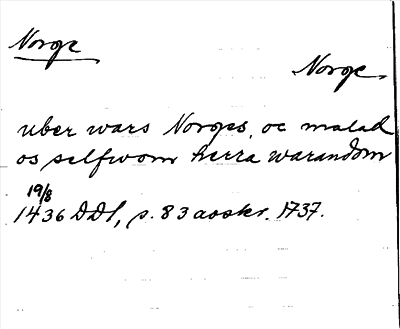 Norge
Norge
uber wars Norges, oc malad
os selfwom herra warandom
19/8
1436 DD1, s. 83 avskr. 1737.